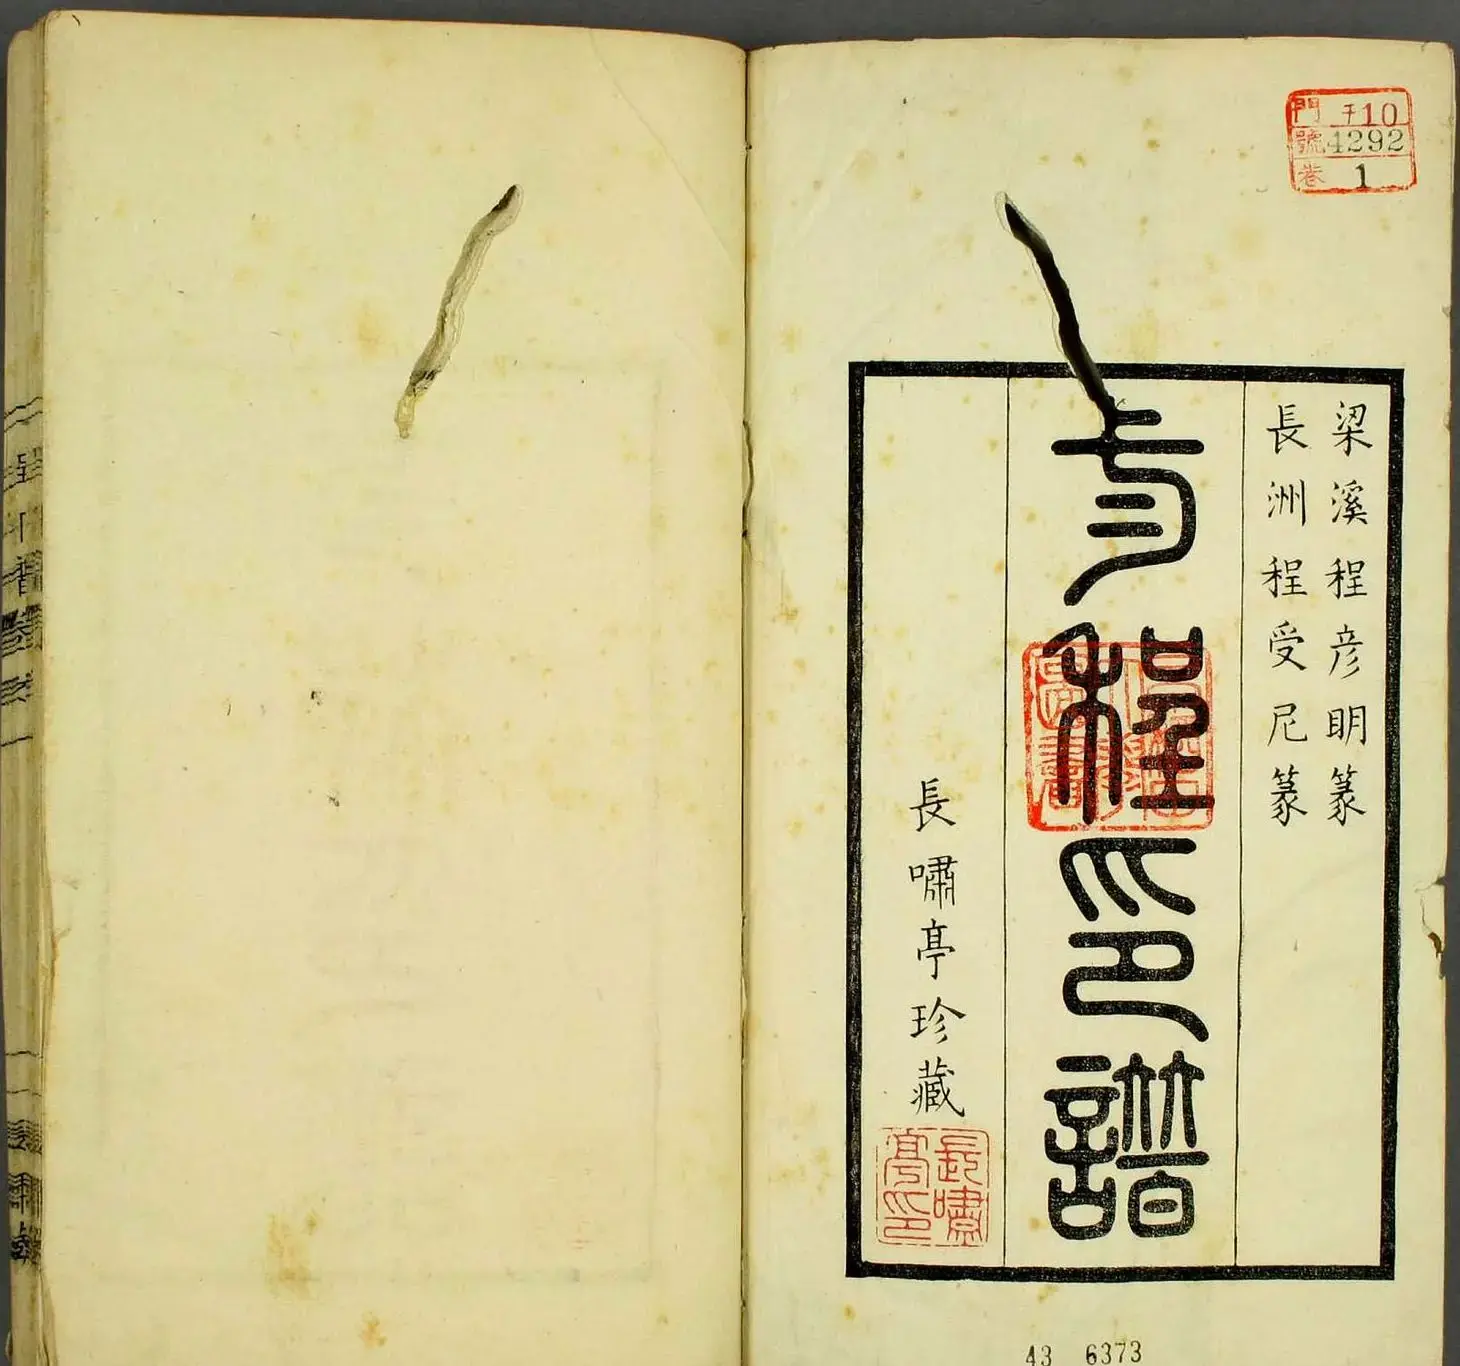 門 チ10
號 4292
卷 1
梁溪程彦明篆
長洲程受尼篆
程印譜
長嘯亭珍藏
長嘯亭印
43 6373